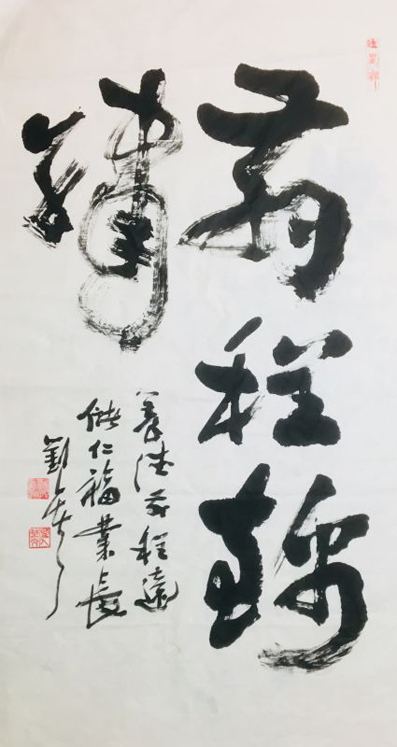 前程錦
繡
養德前程遠
儲仁福業長
劉